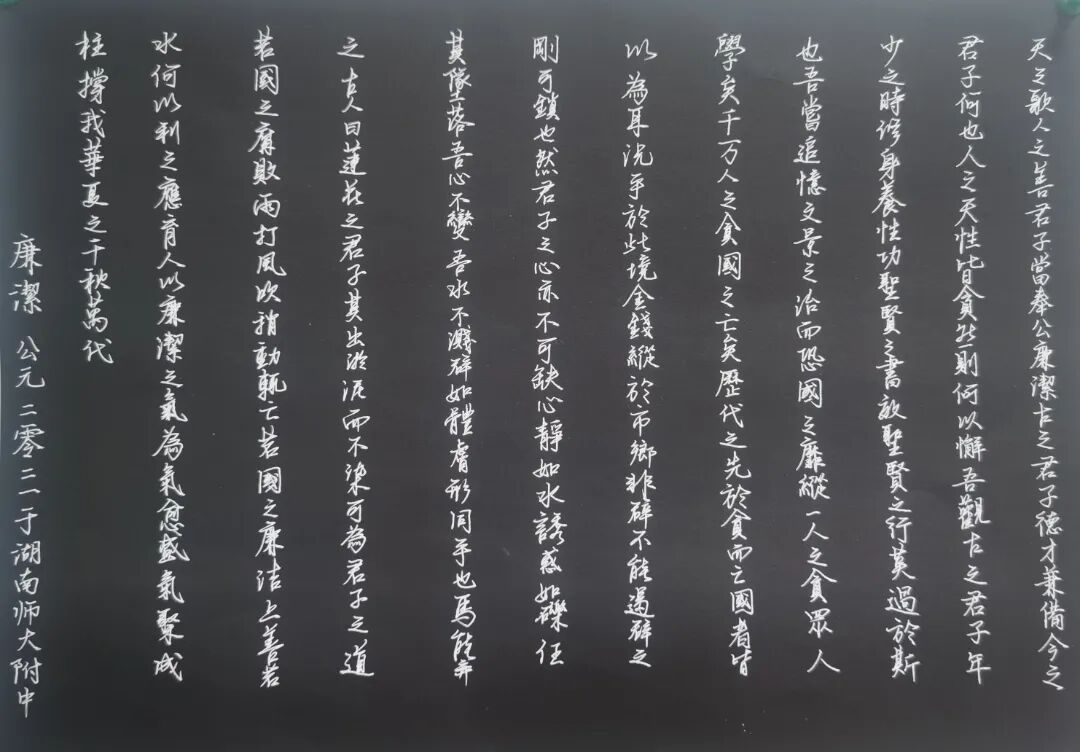 天之歌人之善君子當奉公廉潔古之君子德才兼備今之
君子何也人之天性皆貪然則何以懈吾觀古之君子年
少之時修身養性功聖賢之書效聖賢之行莫過於斯
也吾當追憶文景之治而恐國之靡縱一人之貪眾人
學矣千万人之貪國之亡矣歷代之先於貪而亡國者皆
以為耳洗乎於此境金錢縱於市鄉非碎不能過碎之
剛可鎖也然君子之心亦不可缺心靜如水誘惑如礫任
其墜落吾心不變吾水不濺碎如體膚形同乎也焉能弃
之古人曰蓮花之君子其出淤泥而不染可為君子之道
若國之腐敗雨打風吹稍動輒亡若國之廉洁上善若
水何以利之應育人以廉潔之氣為氣愈盛氣聚成
柱撐我華夏之千秋萬代
廉潔 公元二零二一于湖南师大附中